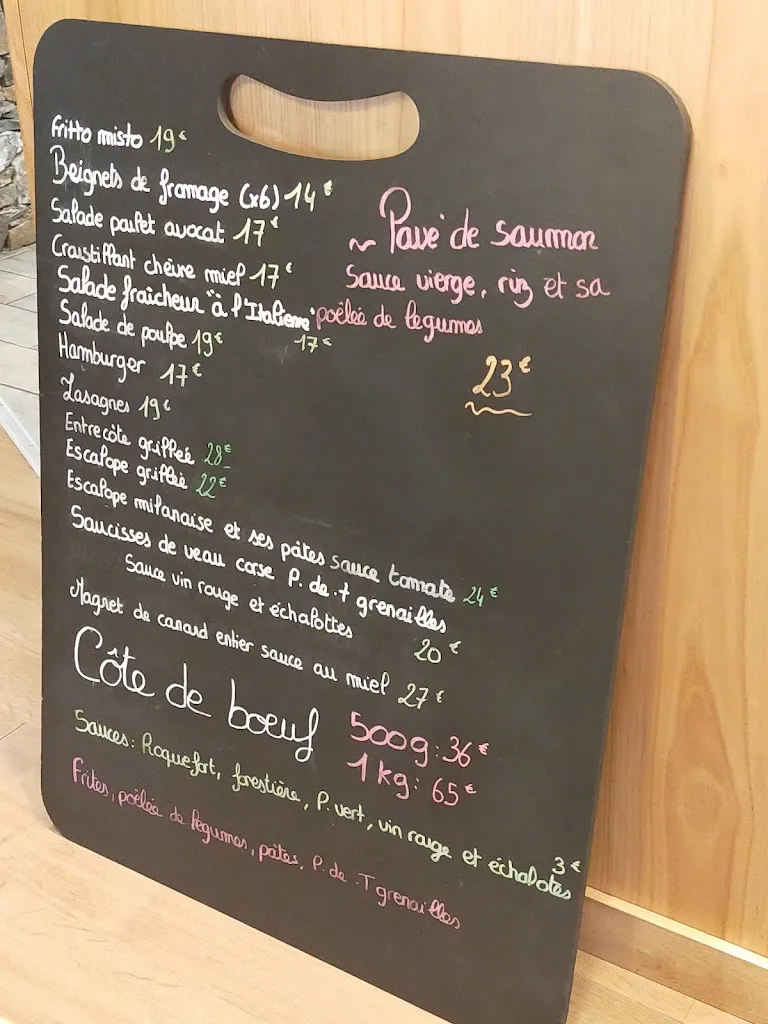 Fritto misto 19€
Beignets de fromage (x6) 14€
Salade poulet avocat 17€
Croustillant chèvre miel 17€
Salade fraîcheur "à l'Italienne" 17€
Salade de poulpe 19€
Hamburger 17€
Lasagnes 19€
Entrecôte grillée 28€
Escalope grillée 22€
Escalope milanaise et ses pâtes sauce tomate 24€
Saucisses de veau corse P. de .t grenailles
Sauce vin rouge et échalottes 20€
Magret de canard entier sauce au miel 27€
Côte de boeuf
500g: 36€
1kg: 65€
Sauces: Roquefort, forestière, P. vert, vin rouge et échalotes 3€
Frites, poêlée de légumes, pâtes, P. de .T grenailles
~ Pavé de saumon
Sauce vierge, riz et sa
poêlée de légumes
23€